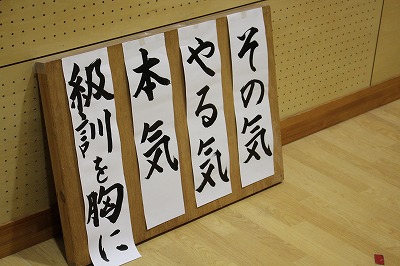 その気
やる気
本気
級訓を胸に